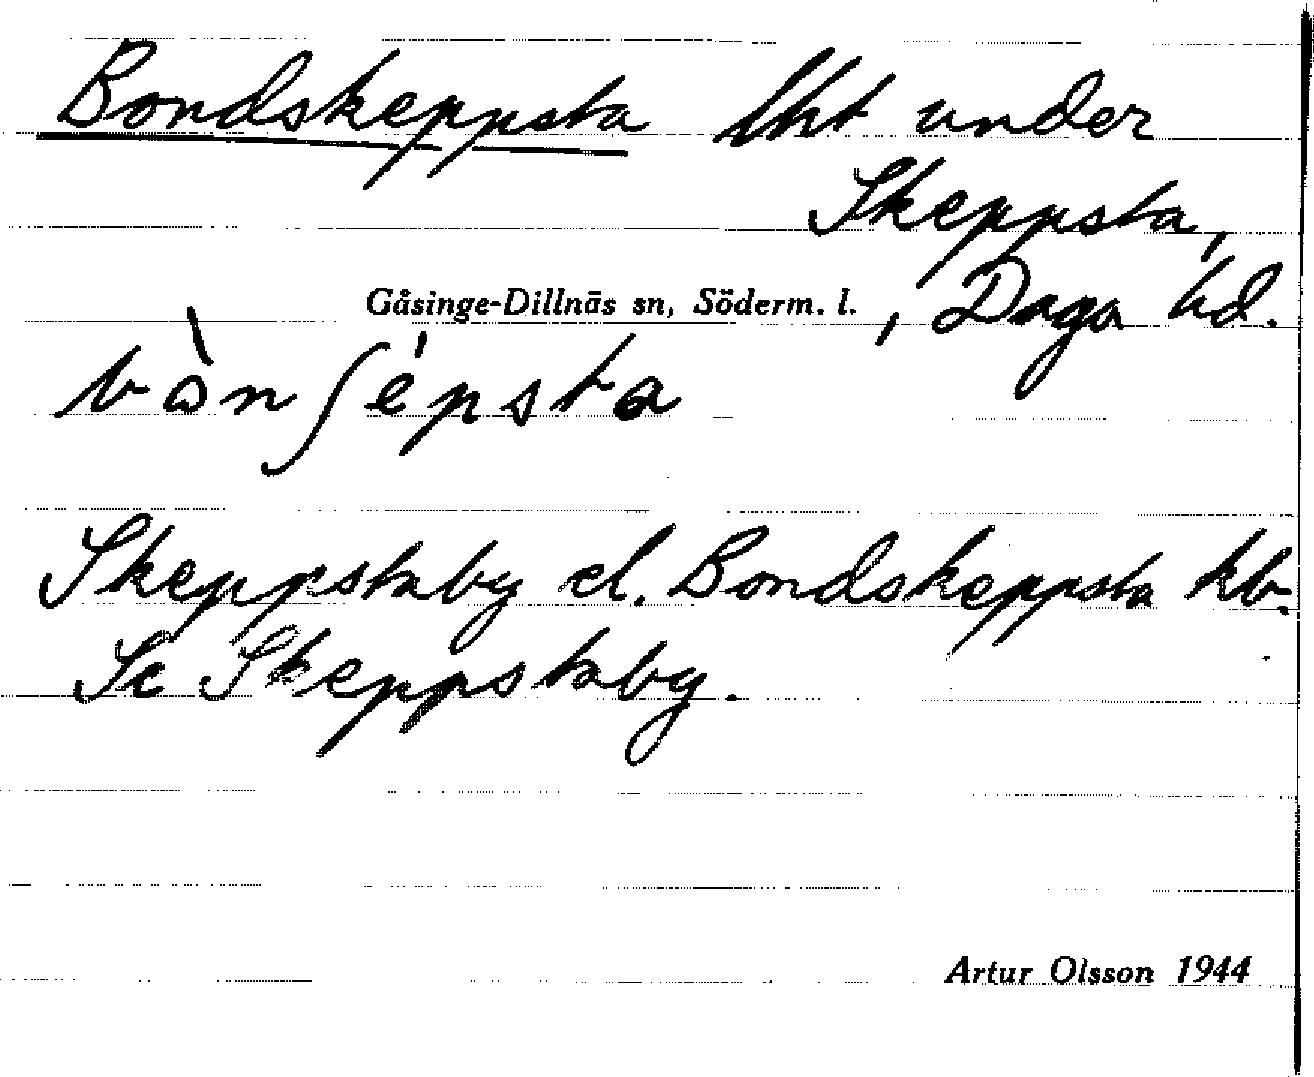 Bondskeppsta lht under
Skeppsta,
Gåsinge-Dillnäs sn, Söderm. l. , Daga hd.
bònʃépsta
Skeppstaby el. Bondskeppsta kb.
Se Skeppstaby.
Artur Olsson 1944